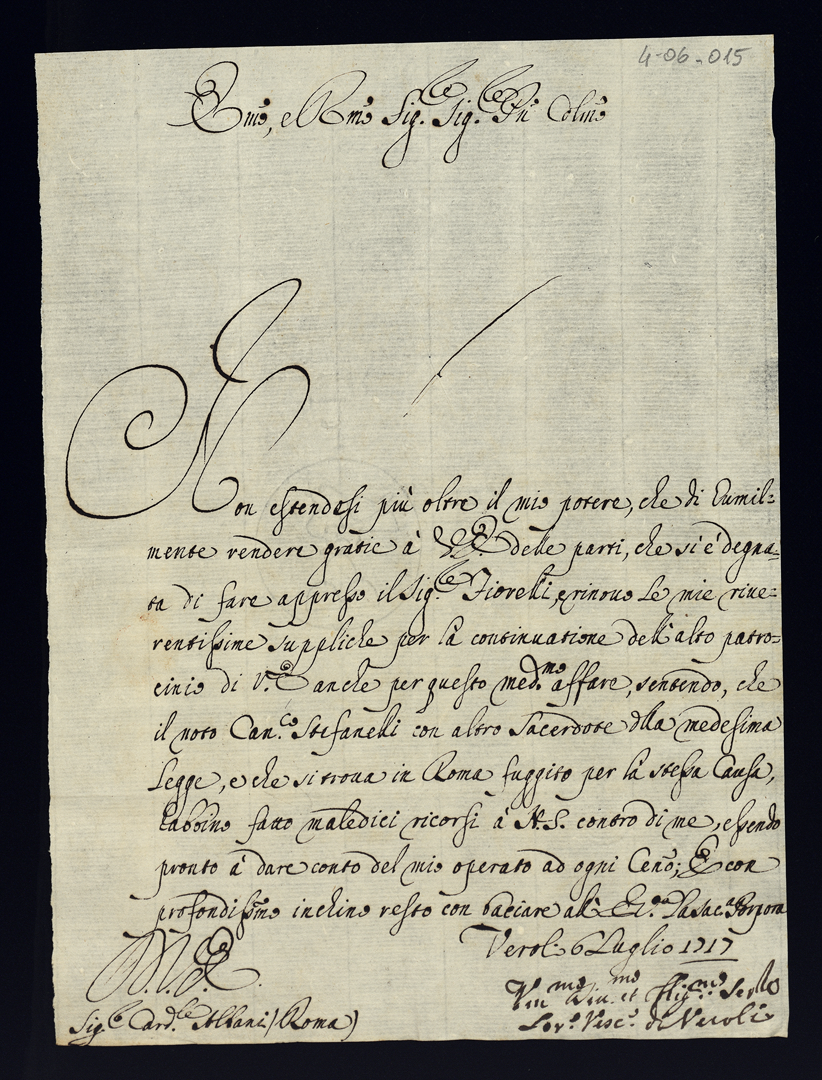 4-06-015
Em̃o, e Rm̃o Sig.re Sig.re Prñ Colm̃o
Non estendosi più oltre il mio potere, che di humil=
mente rendere gratie à V.E. delle parti, che si è degna=
ta di fare appresso il Sig.re Fiorelli, e rinovo le mie rive=
rentissime suppliche per la continuatione dell'alto patro=
cinio di V.E. anche per questo med.mo affare, sentendo, che
il noto Can.co Stefanelli con altro Sacerdote dlla medesima
legge, e che si trova in Roma fuggito per la stessa Causa,
habbino fatto maledici ricorsi à N.S. contro di me, essendo
pronto à dare conto del mio operato ad ogni Cenno; E con
profondiss.mo inchino resto con bacciare all' E.V. la Sac.a Porpora
Veroli 6 Luglio 1717
Sig.r Card.le Albani (Roma)
Um.mo et Serro
Vesc.o di Veroli